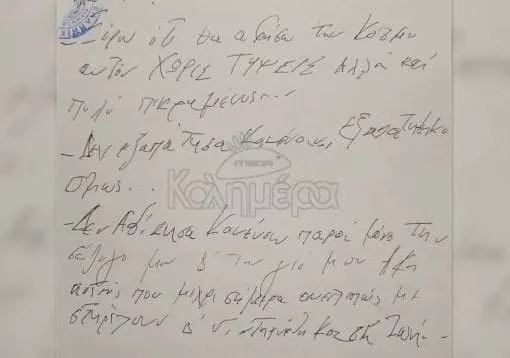 ότι θα αφήσω τον Κόσμο
αυτόν ΧΩΡΙΣ ΤΥΨΕΙΣ Αλλά και
πολύ πικραμένος...
- Δεν εξαπάτησα Κανέναν, Εξαπατήθηκα
όμως..
Καλημέρα
- Δεν Αδίκησα Κανέναν παρά μόνο την
σύζυγο μου & τον γιό μου
αυτούς που μέχρι σήμερα με
στηρίζουν &